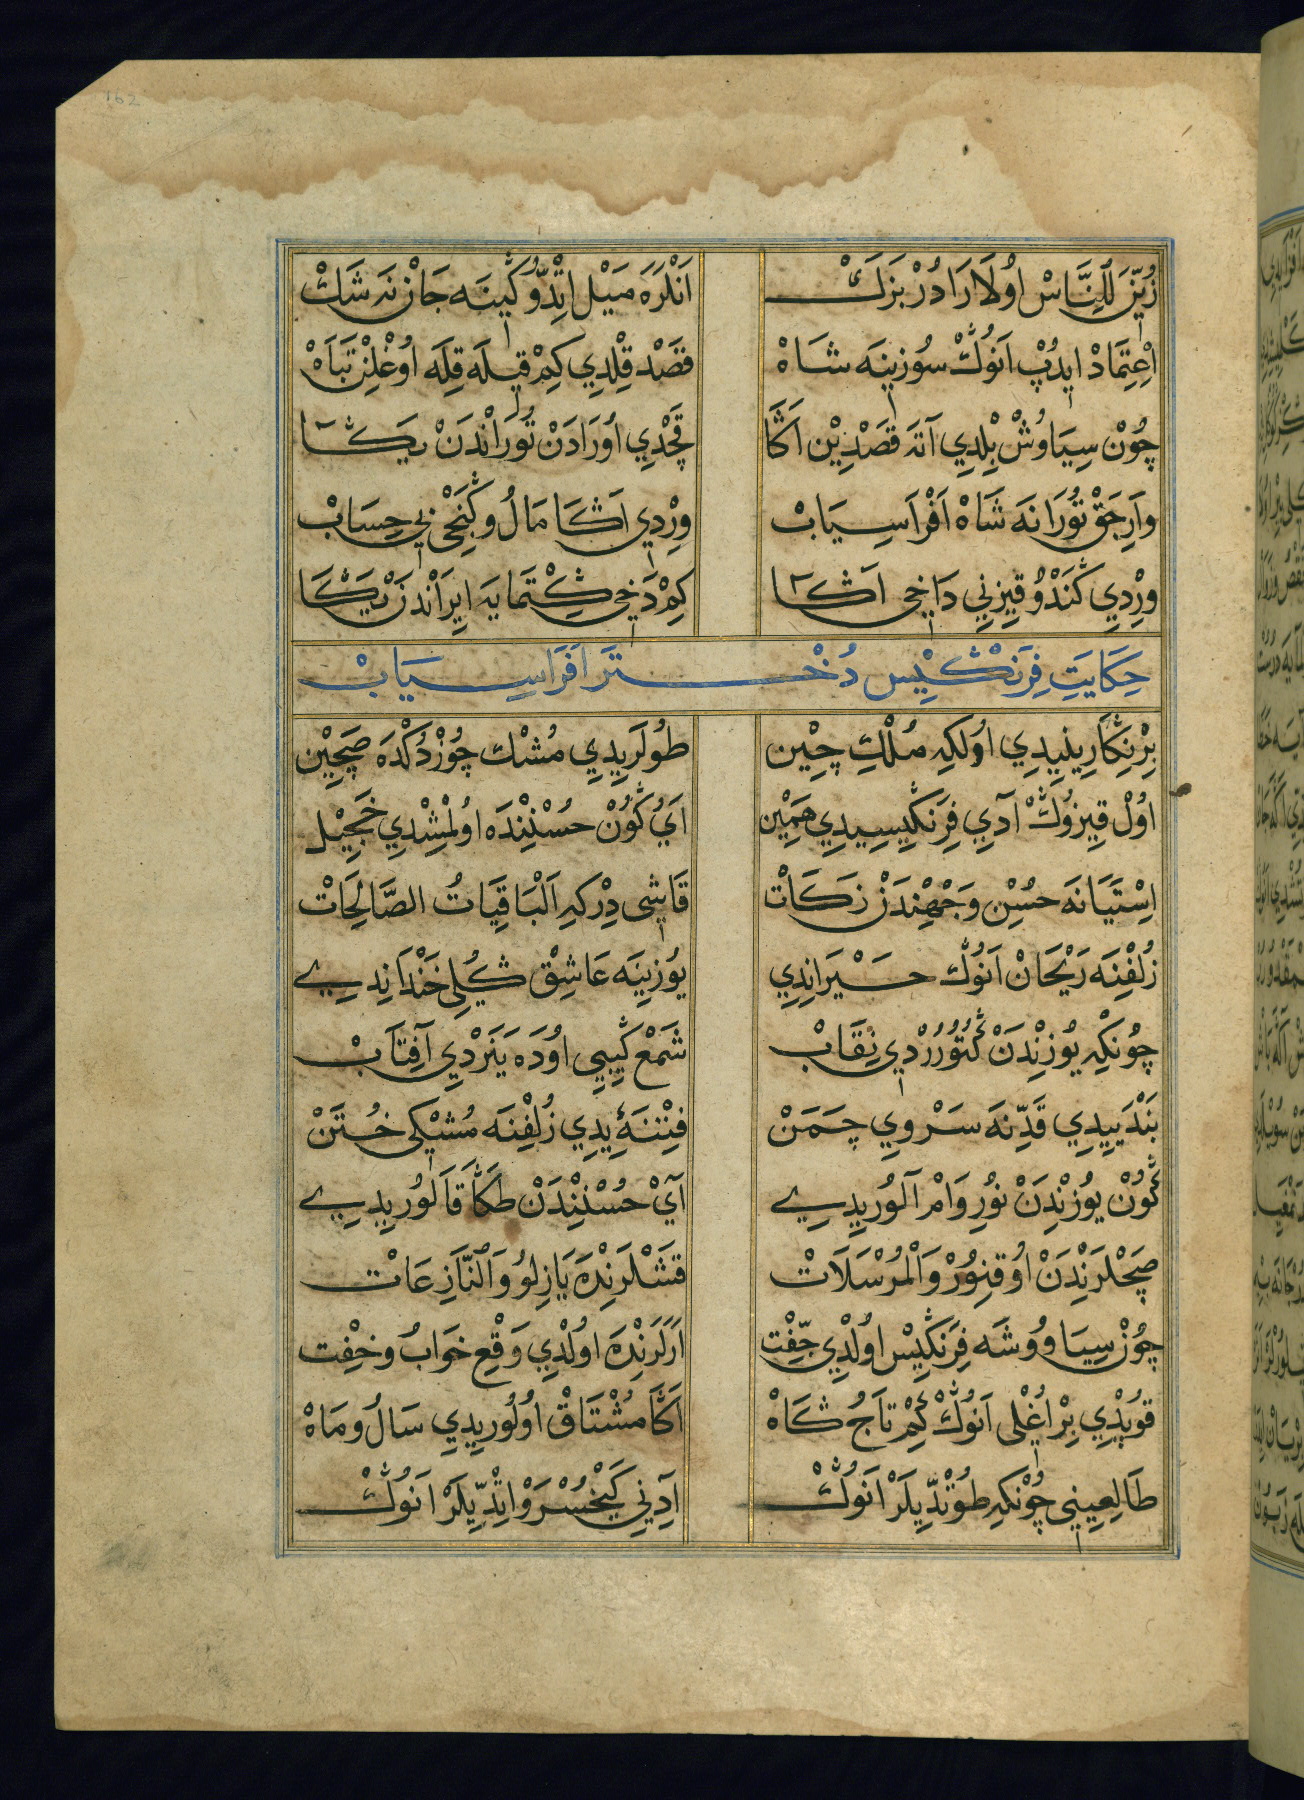 زُيِّنَ لِلنَّاسْ اُولَارَادُرْ بَزَكْ اَنْلَرَه مَيْل اِتْدّوُكِينَه جَانْ نَه شَكْ
اِعْتِمَادْ ايدُپْ اَنُوكْ سوُزينَه شَاهْ قَصْد قِلْدِي كِمْ قِيلَه اوُغْلِنْ تَبَاهْ
چُونْ سِيَاوُشْ بِلْدِي آتَه قَصْدِيْن اَكَا قَچْدِي اُورَادَنْ تُورَانْدَنْ يَكَا
وَارِجَقْ تُورَانَه شَاهْ اَفْرَاسِيَابْ وِرْدِي اَكَا مَالُ وكَنْجِ بِي حِسَابْ
وِرْدِي كَنْدُو قِيزِنِي دَاخِي اَكَا كِمْ دَخِي كِتْمَايَه اِيرَانْدَنْ يَكَا
حِكَايَتِ فِرَنْكِيْس دُخْتَرِ اَفْرَاسِيَابْ
بِرْ نِكَارِينِيدِي اوُلكِهِ مُلْكِ چِيْن طُولَرِيدِي مُشْك چُوزْدُكْدَه صَچِيْن
اوُلْ قِيزوُكْ آدِي فِرَنْكِيسِيدِي هَمِيْن اَيُ كُونْ حُسْنِنْدَه اوُلْمِشْدِي خَجِيْل
اِسْتَيَانَه حُسْنِ وَجْهِنْدَنْ زَكَاتْ قَاشِي دِرْكِهِ اَلْبَاقِيَاتُ الصَّالِحَاتْ
زُلْفِنَه رَيْحَانْ اَنُوكْ حَيْرَانِدِي يوُزِينَه عَاشِقْ كُلِ خَنْدَانِدِي
چُونكِهِ يوُزِنْدَنْ كُتُورُرْدِي نِقَابْ شَمْعِ كِيبِي اوُدَه يَنَرْدِي آفِتَابْ
بَنْدَييِدِي قَدِّنَه سَرْوِي چَمَنْ فِتْنَهٔيِدِي زُلْفِنَه مُشْكِي خُتَنْ
كُونْ يوُزِنْدَنْ نُورِ وَامْ آلوُرِيدِي آيْ حُسْنِنْدَنْ طَكَا قَالوُرِيدِي
صَچْلَرِنْدَنْ اوُقِنوُرْ وَالْمُرْسَلَاتْ قَشْلَرِنْدَه يَازِلوُ وَالنَّازِعَاتْ
چُونْ سِيَاووُشَه فِرَنْكِيْس اوُلْدِي جِفْت اَرَلَرِنْدَه اوُلْدِي وَقْعِ خوَابُ وخِفْت
قوُپْدِي بِرْ اُغْلِي اَنُوكْ كِمْ تَاجُ كَاهْ اَكَا مُشْتَاقْ اوُلوُرِيدِي سَالُ ومَاهْ
طَالِعِينِي چُونْكِهِ طوُتْدِيلَرْ اَنُوكْ آدِنِي كَيْخُسْرَوْ اِتْدِّيلَرْ اَنُوكْ
162